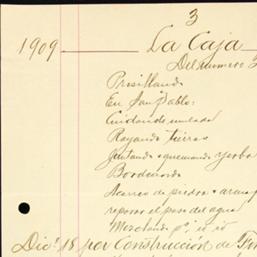 3
1909 La Caja
Del numero 3
Prestillando
En San Pablo:
Cuidando
Rayando tierras
Juntando y quemando yerba
Bordeando
Acarreo de piedra y arena
reponer el paso del agua
Mezclando
Dic. 18 por Construcción de